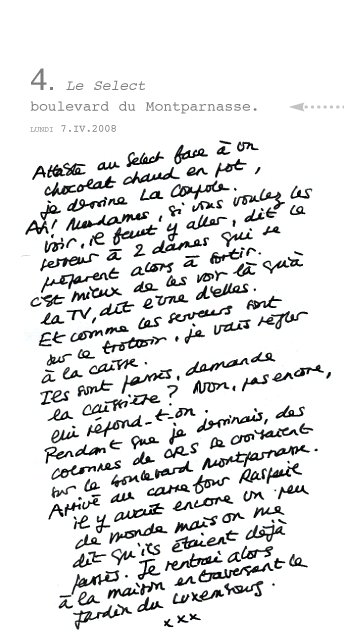 4. Le Select
boulevard du Montparnasse.
LUNDI 7.IV.2008
Attablé au Select face à un
chocolat chaud en pot,
je dessine La Coupole.
Ah! Mesdames, si vous voulez les
voir, il faut y aller, dit le
serveur à 2 dames qui se
préparent alors à sortir.
c'est mieux de les voir là qu'à
la TV, dit l'une d'elles.
Et comme les serveurs sont
sur le trottoir, je vais régler
à la caisse.
Ils sont passés, demande
la caissière? Non, pas encore,
lui répond-t-on.
Pendant que je dessinais, des
colonnes de CRS se croisaient
sur le boulevard Montparnasse.
Arrivé au carrefour Raspail
il y avait encore un peu
de monde mais on me
dit qu'ils étaient déjà
passés. Je rentrai alors
à la maison en traversant le
jardin du Luxembourg.
xxx